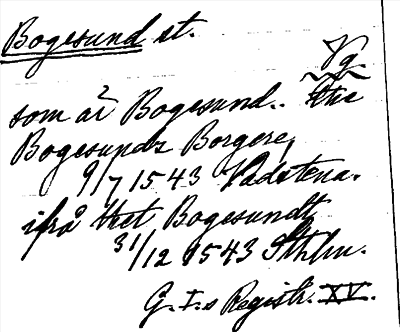 Bogesund st.
Vg.
som är Bogesund. the
Bogesunds Borgere,
9/7 1543 Vadstena.
ifrå thet Bogesundt
31/12 1543 Sthlm.
G. I:s Registr. XV.